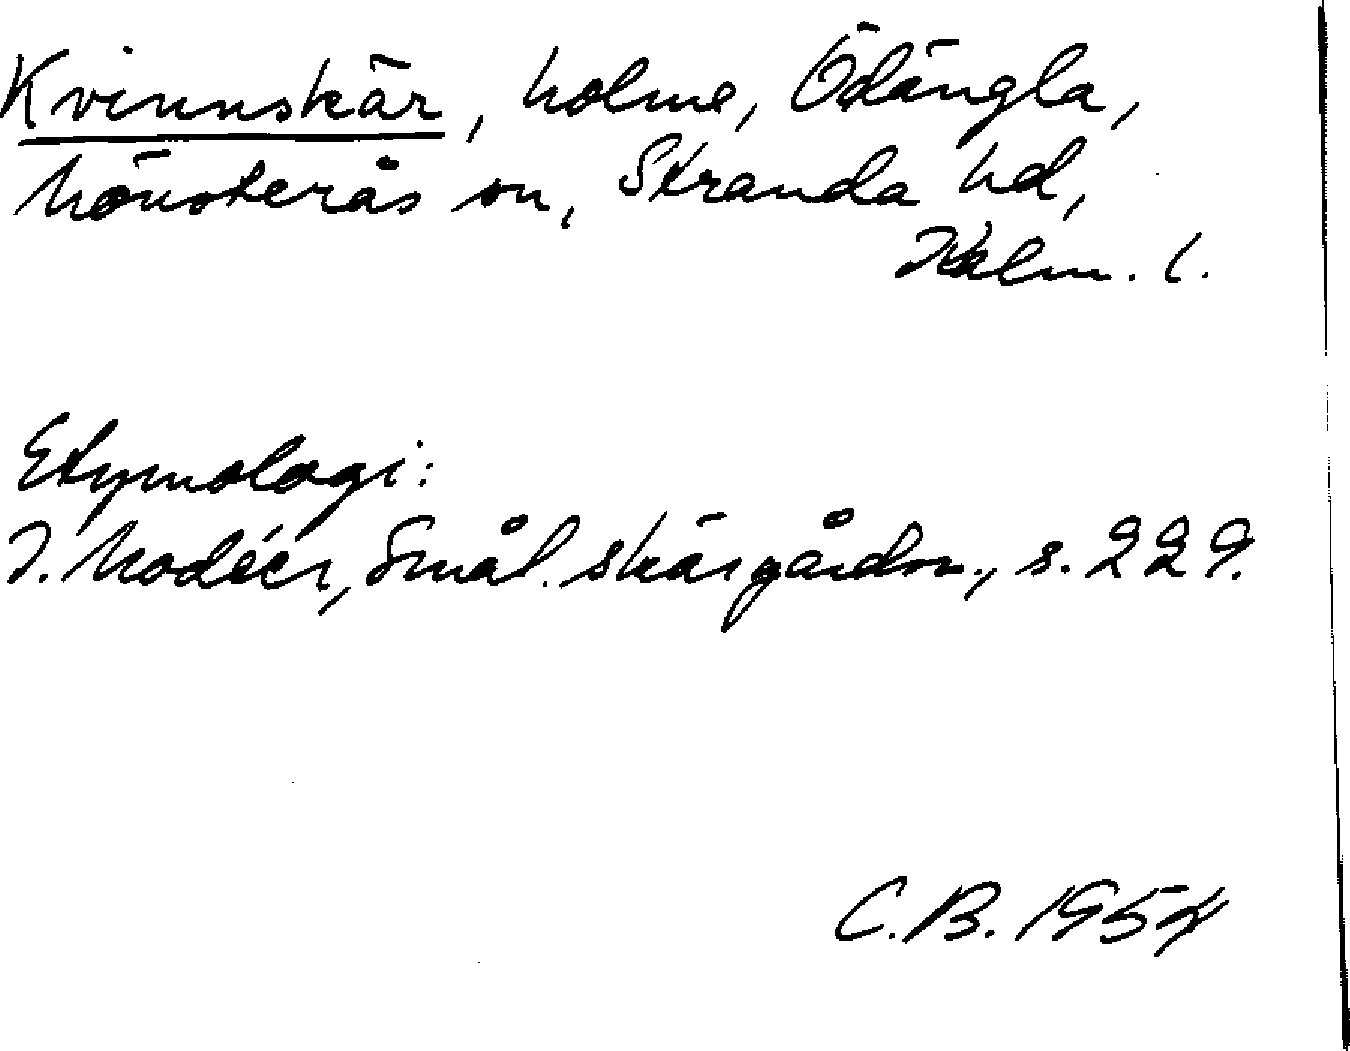 Kvinnskär, holme, Ödängla,
Mönsterås sn, Stranda hd,
Kalm. l.
Etymologi:
I. Modéer, Smål. skärgårdsn., s. 229.
C.B. 1954